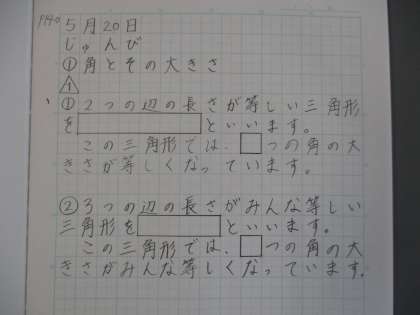 5月20日
じゅんび
①角とその大きさ
1
①2つの辺の長さが等しい三角形
を といいます。
この三角形では、 つの角の大
きさが等しくなっています。
②3つの辺の長さがみんな等しい
三角形を といいます。
この三角形では、 つの角の大
きさがみんな等しくなっています。